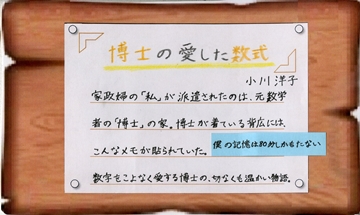 博士の愛した数式
小川洋子
家政婦の「私」が派遣されたのは、元数学
者の「博士」の家。博士が着ている背広には、
こんなメモが貼られていた。
僕の記憶は80分しかもたない
数字をこよなく愛する博士の、切なくも温かい物語。